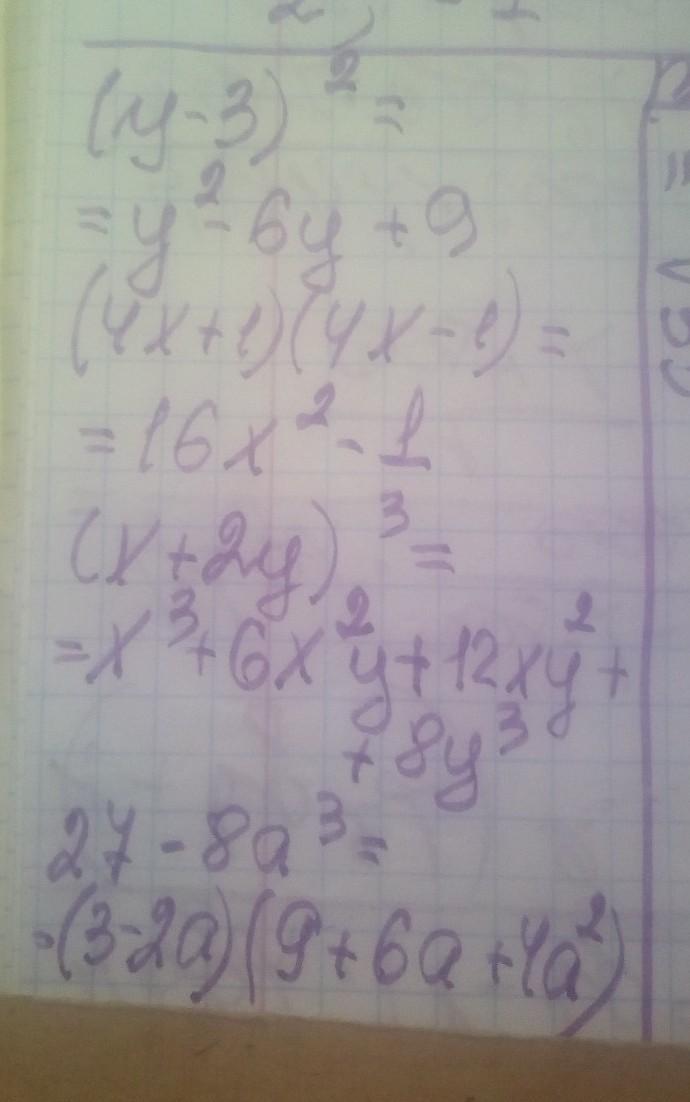 (y-3)²=
=y²-6y+9
(4x+1)(4x-1)=
=16x²-1
(x+2y)³=
=x³+6x²y+12xy²+
+8y³
27-8a³=
=(3-2a)(9+6a+4a²)